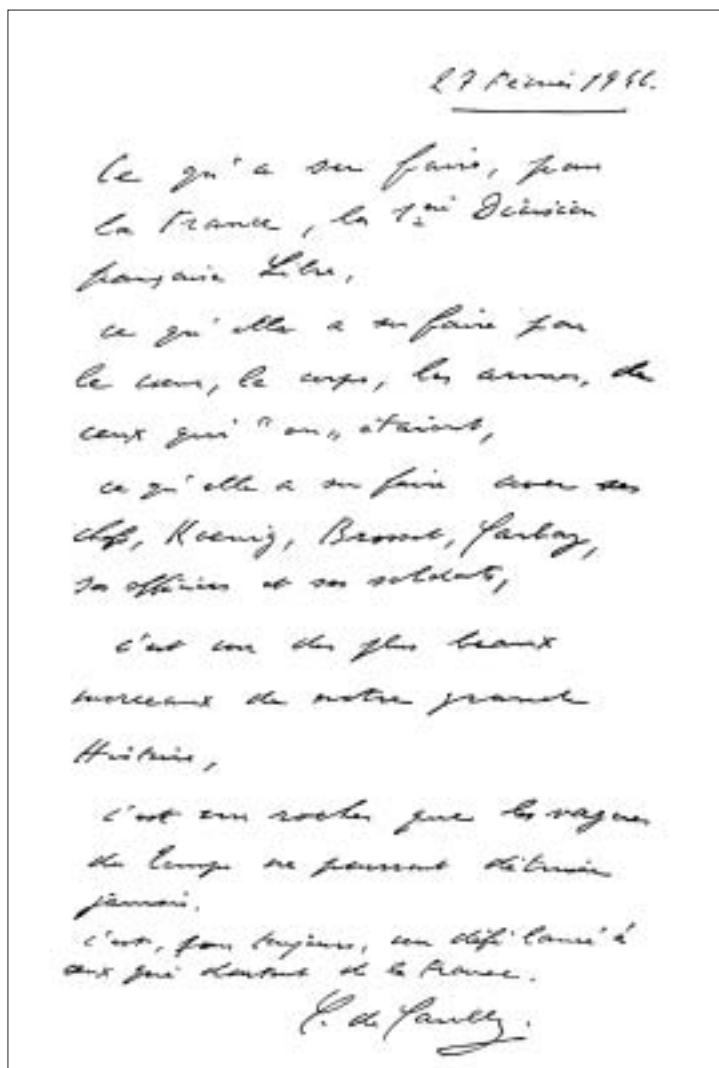 27 Février 1946.
Ce qu'a su faire, pour
la France, la 1ère Division
française Libre,
ce qu'elle a su faire par
le cœur, le corps, les armes, de
ceux qui "en" étaient,
ce qu'elle a su faire avec ses
chefs, Kœnig, Brosset, Garbay,
ses officiers et ses soldats,
c'est un des plus beaux
morceaux de notre grande
Histoire,
c'est un rocher que les vagues
du temps ne pourront détruire
jamais.
C'est, pour toujours, un défi lancé à
ceux qui doutent de la France.
C. de Gaulle.